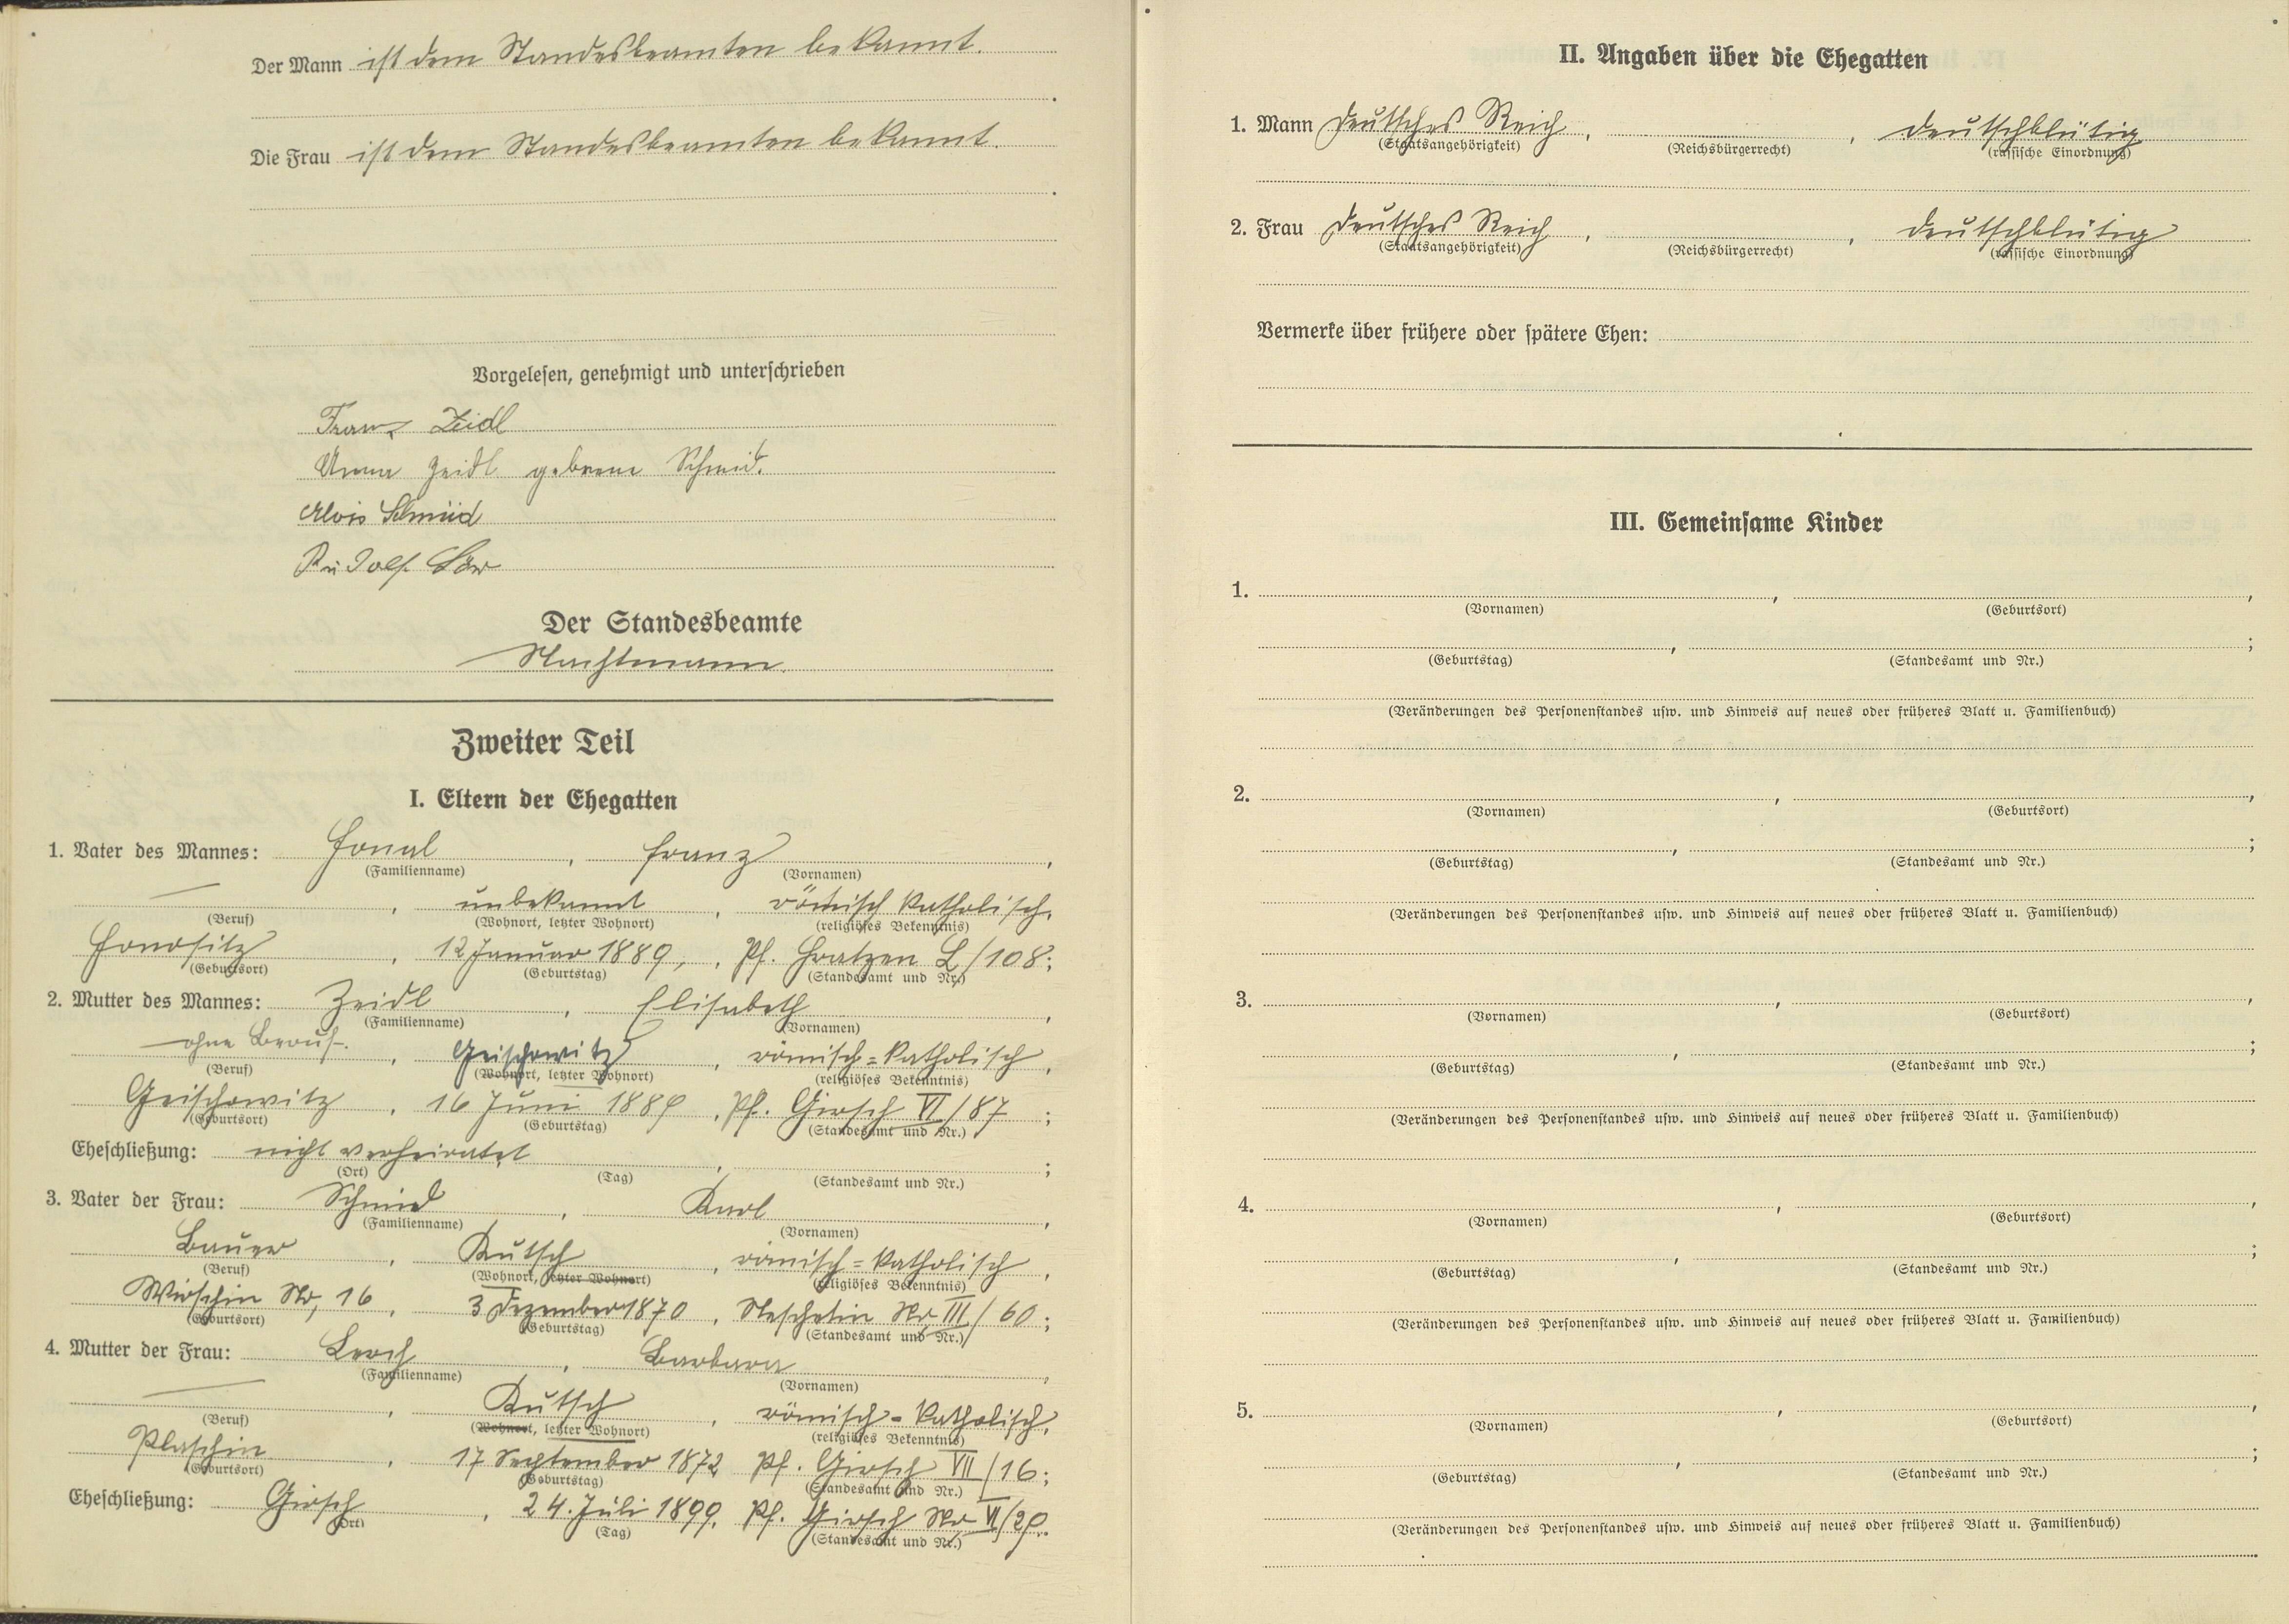 Der Mann ist dem Standesbeamten bekannt.
Die Frau ist dem Standesbeamten bekannt.
Vorgelesen, genehmigt und unterschrieben
Franz Zeidl
Anna Zeidl geborene Schmid.
Alois Schmid
Rudolf
Der Standesbeamte
Nachtmann.
Zweiter Teil
I. Eltern der Ehegatten
1. Vater des Mannes: , Franz ,
(Familienname) (Vornamen)
— , unbekannt , römisch katholisch,
(Beruf) (Wohnort, letzter Wohnort) (religiöses Bekenntnis)
, 12 Januar 1889, , Pf. L/108;
(Geburtsort) (Geburtstag) (Standesamt und Nr.)
2. Mutter des Mannes: Zeidl , Elisabeth ,
(Familienname) (Vornamen)
ohne Beruf. , Geischowitz , römisch=katholisch ,
(Beruf) (Wohnort, letzter Wohnort) (religiöses Bekenntnis)
Geischowitz , 16 Juni 1889 , Pf. Girsch VI/87 ;
(Geburtsort) (Geburtstag) (Standesamt und Nr.)
Eheschließung: nicht verheiratet , ;
(Ort) (Tag) (Standesamt und Nr.)
3. Vater der Frau: Schmid , Karl ,
(Familienname) (Vornamen)
Bauer , Kutsch , römisch=katholisch ,
(Beruf) (Wohnort, letzter Wohnort) (religiöses Bekenntnis)
Wirschin Nr, 16 , 3 Dezember 1870 , Neschetin Nr III/60;
(Geburtsort) (Geburtstag) (Standesamt und Nr.)
4. Mutter der Frau: Lerch , Barbara ,
(Familienname) (Vornamen)
— , Kutsch , römisch=katholisch,
(Beruf) (Wohnort, letzter Wohnort) (religiöses Bekenntnis)
Plaschin , 17 September 1872 Pf. Girsch VII/16;
(Geburtsort) (Geburtstag) (Standesamt und Nr.)
Eheschließung: Girsch , 24. Juli 1899, Pf. Girsch Nr VI/29.
(Ort) (Tag) (Standesamt und Nr.)
II. Angaben über die Ehegatten
1. Mann Deutsches Reich , , deutschblütig
(Staatsangehörigkeit) (Reichsbürgerrecht) (rassische Einordnung)
2. Frau Deutsches Reich , , deutschblütig
(Staatsangehörigkeit) (Reichsbürgerrecht) (rassische Einordnung)
Vermerke über frühere oder spätere Ehen:
III. Gemeinsame Kinder
1. , ,
(Vornamen) (Geburtsort)
, ;
(Geburtstag) (Standesamt und Nr.)
(Veränderungen des Personenstandes usw. und Hinweis auf neues oder früheres Blatt u. Familienbuch)
2. , ,
(Vornamen) (Geburtsort)
, ;
(Geburtstag) (Standesamt und Nr.)
(Veränderungen des Personenstandes usw. und Hinweis auf neues oder früheres Blatt u. Familienbuch)
3. , ,
(Vornamen) (Geburtsort)
, ;
(Geburtstag) (Standesamt und Nr.)
(Veränderungen des Personenstandes usw. und Hinweis auf neues oder früheres Blatt u. Familienbuch)
4. , ,
(Vornamen) (Geburtsort)
, ;
(Geburtstag) (Standesamt und Nr.)
(Veränderungen des Personenstandes usw. und Hinweis auf neues oder früheres Blatt u. Familienbuch)
5. , ,
(Vornamen) (Geburtsort)
, ;
(Geburtstag) (Standesamt und Nr.)
(Veränderungen des Personenstandes usw. und Hinweis auf neues oder früheres Blatt u. Familienbuch)